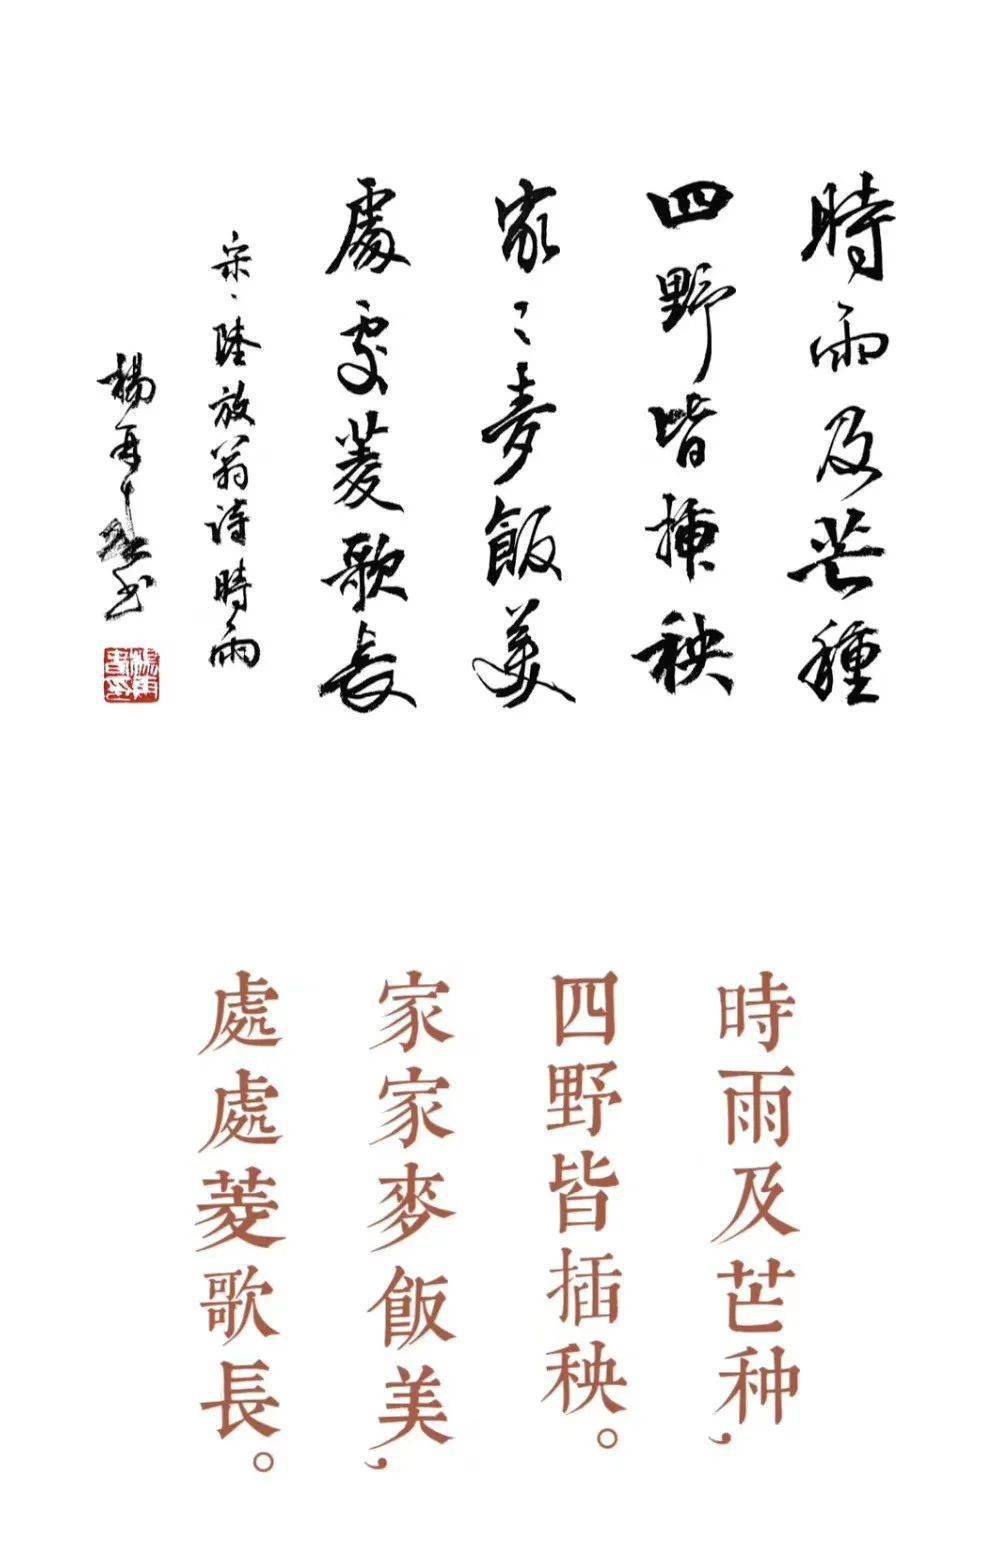 時雨及芒種
四野皆插秧
家々麥飯美
處處菱歌長
宋、陸放翁詩時雨
楊再春書
時雨及芒种，
四野皆插秧。
家家麥飯美，
處處菱歌長。